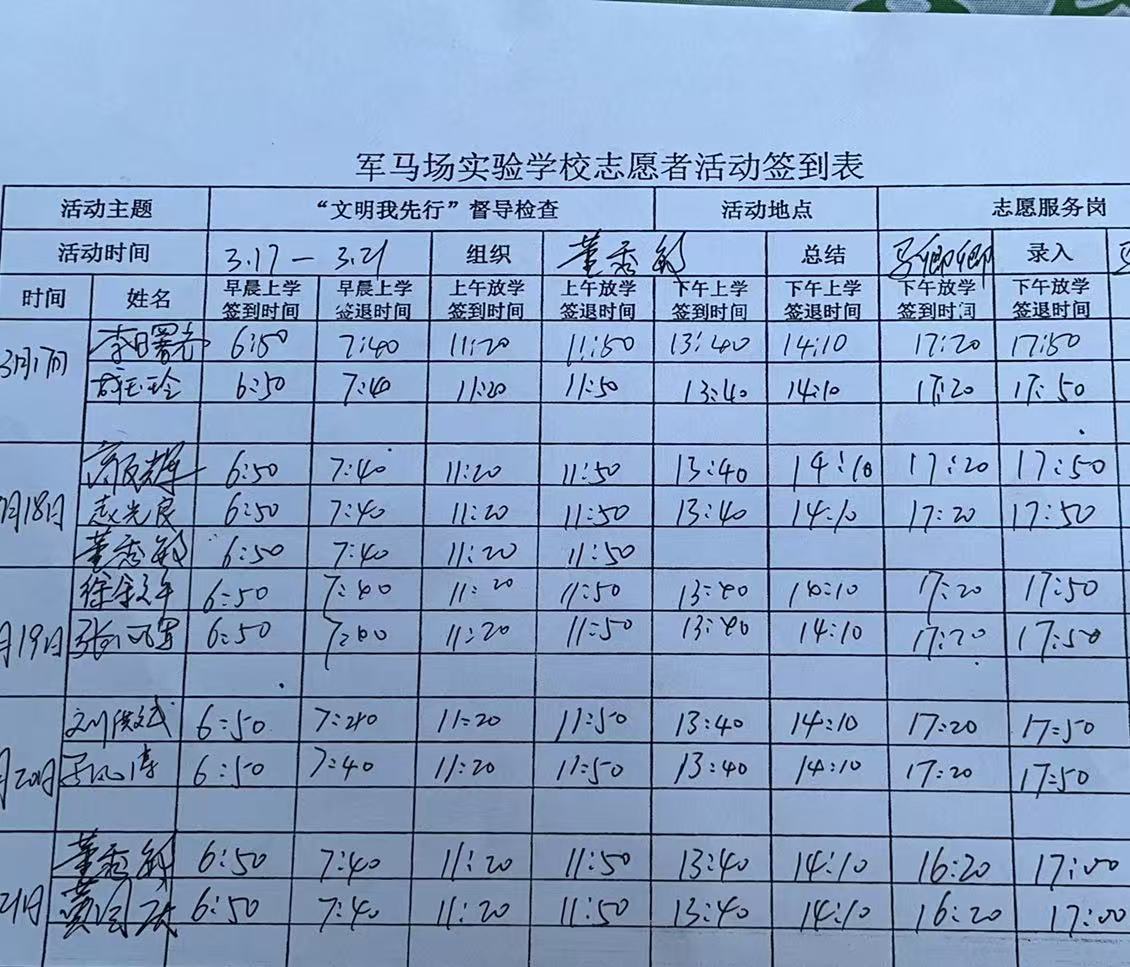 军马场实验学校志愿者活动签到表
活动主题 “文明我先行”督导检查 活动地点 志愿服务岗
活动时间 3.17 — 3.21 组织 董秀敏 总结 马卿卿 录入
时间 姓名 早晨上学签到时间 早晨上学签退时间 上午放学签到时间 上午放学签退时间 下午上学签到时间 下午上学签退时间 下午放学签到时间 下午放学签退时间
3月17日 李曙光 6:50 7:40 11:20 11:50 13:40 14:10 17:20 17:50
玉玲 6:50 7:40 11:20 11:50 13:40 14:10 17:20 17:50
6:50 7:40 11:20 11:50 13:40 14:10 17:20 17:50
月18日 赵光良 6:50 7:40 11:20 11:50 13:40 14:10 17:20 17:50
董秀敏 6:50 7:40 11:20 11:50
徐 6:50 7:40 11:20 11:50 13:40 14:10 17:20 17:50
月19日 张 6:50 7:40 11:20 11:50 13:40 14:10 17:20 17:50
刘 6:50 7:40 11:20 11:50 13:40 14:10 17:20 17:50
月20日 6:50 7:40 11:20 11:50 13:40 14:10 17:20 17:50
董秀敏 6:50 7:40 11:20 11:50 13:40 14:10 16:20 17:00
21日 黄 6:50 7:40 11:20 11:50 13:40 14:10 16:20 17:00